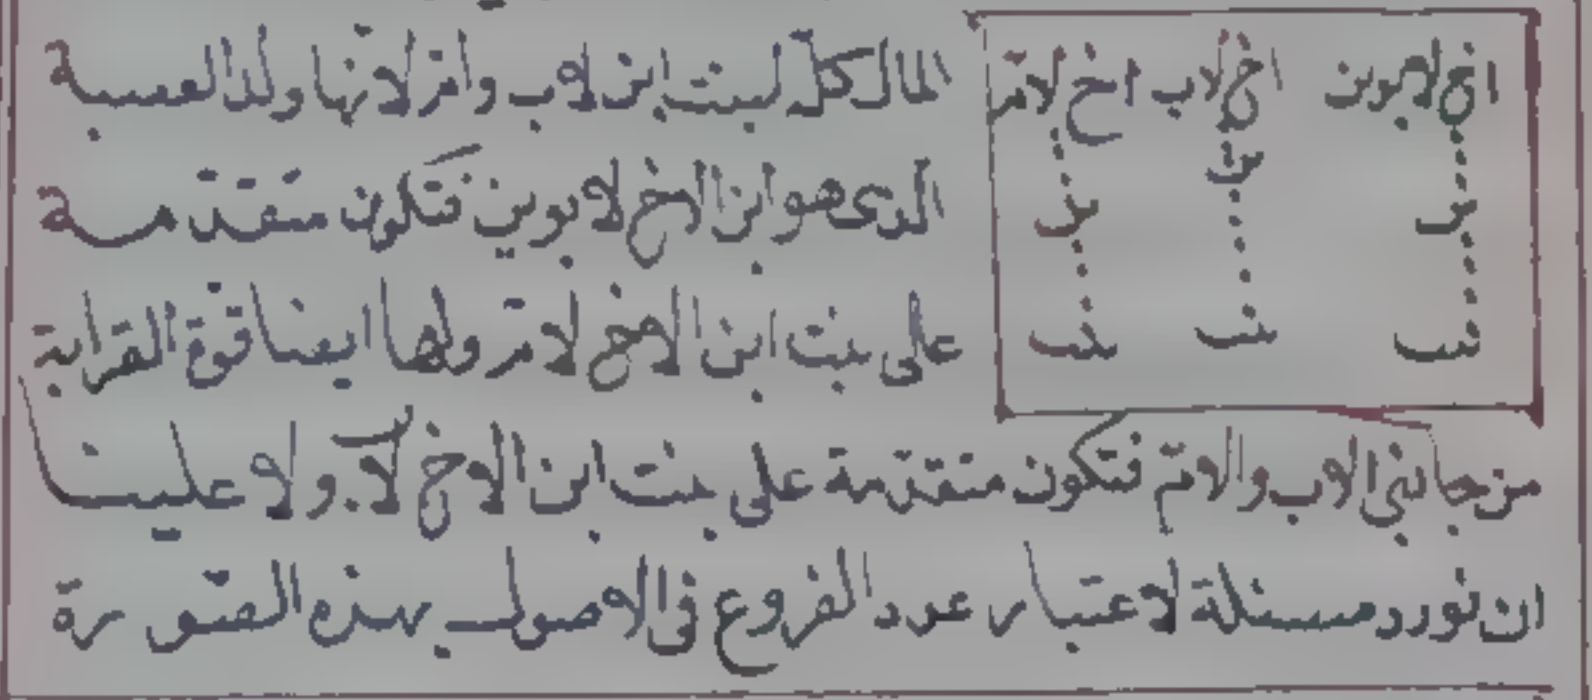 اخ لابوين اخ لاب اخ لام
بن
ابن ابن
بنت بنت بنت
المال كلّه لبنت ابن لاب وامّ لانها ولد العصبة
الذى هو ابن الاخ لابوين فتكون متقدمة
على بنت ابن الاخ لامّ ولها ايضا قوة القرابة
من جانبي الاب والامّ فتكون متقدّمة على بنت ابن الاخ لاب ولا علينا
ان نورد مسئلة لاعتبار عدد الفروع فى الاصول بهذه الصّورة